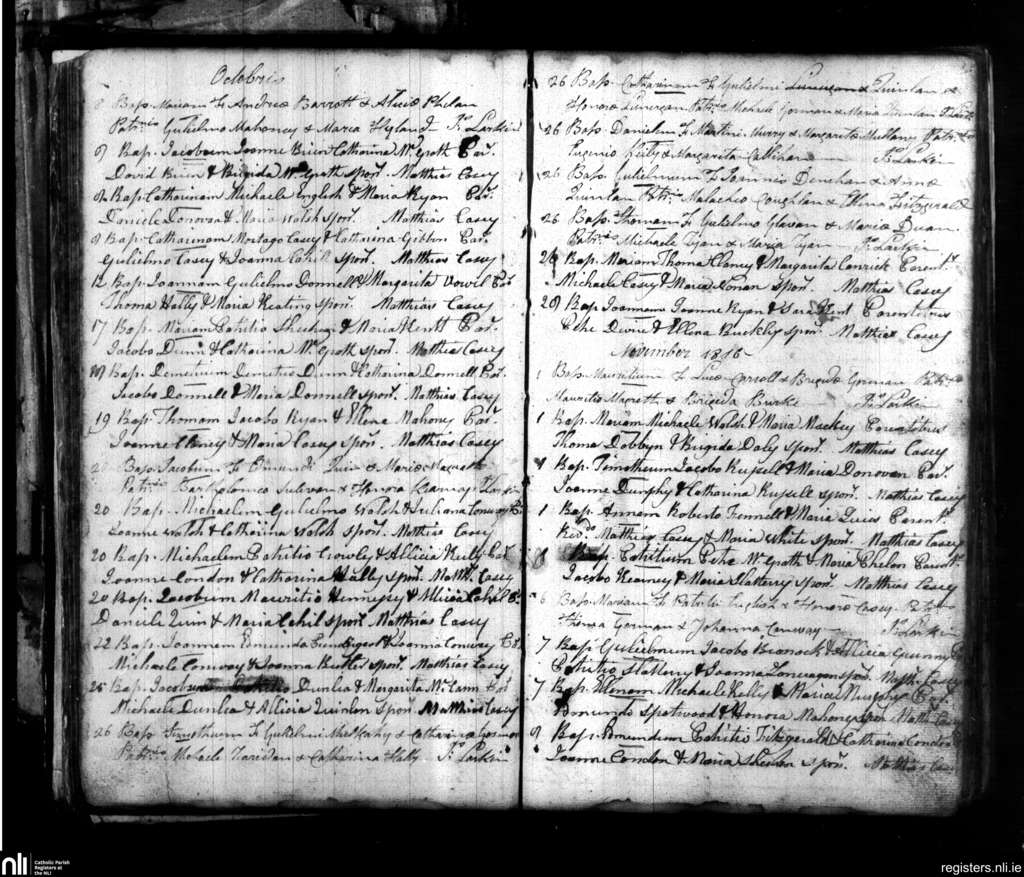 Octobris
8 Bap. Mariam F. Andreæ Barrott & Aliciæ Phelan
Patr.nis Gulielmo Mahoney & Maria Hyland Jno Larkin
9 Bap. Jacobum Joanne Brien Catharina McGrath Par.
David Brien & Brigida McGrath spor. Matthias Casey
9 Bap. Catharinam Michaele English & Maria Ryan Par.
Daniele Donovan & Maria Walsh spor. Matthias Casey
9 Bap. Catharinam Mortago Casey & Catharina Gibbon Par.
Gulielmo Casey & Joanna Cahil spor. Matthias Casey
12 Bap. Joannam Gulielmo Donnell & Margarita Par.
Thoma Hally & Maria Keating spor. Matthias Casey
17 Bap. Mariam Patritio Sheehan & Maria Par.
Jacobo Dunn & Catharina McGrath spor. Matthias Casey
Bap. Demetrium Demetrio Dunn & Catharina Donnell Par.
Jacobo Donnell & Maria Donnell spor. Matthias Casey
19 Bap. Thomam Jacobo Ryan & Ellena Mahony Par.
Joanne & Maria Casey spor. Matthias Casey
20 Bap. Jacobum F. Edmundi Quin & Mariæ
Patr.nis Bartholomeo Sulivan & Honora Kearney Jno Larkin
20 Bap. Michaelem Gulielmo Walsh & Juliana Conway
Joanne Walsh & Catharina Walsh spor. Mathias Casey
20 Bap. Michaelem Patritio Crowly & Allicia Kelly Par
Joanne Condon & Catharina Hally spor. Matth. Casey
20 Bap. Jacobum Mauritio Hennessy & Allicia Cahil
Daniele Quin & Maria Cahil spor. Matthias Casey
22 Bap. Joannem Edmundo & Joanna Conway
Michaele Conway & Joanna spor. Matthias Casey
25 Bap. Jacobum Dunlea & Margarita McCann Par
Michaele Dunlea & Allicia Quinlan Spor. Matthias Casey
26 Bap. Timotheum F. Gulielmi & Catharinæ Gorman
Patr.nis Michaele & Catharina Hally Jno Larkin
26 Bap. Catharinam F. Gulielmi Quinlan &
Honoræ Patr.nis Michaele Gorman & Maria
26 Bap. Danielem F. Martini Murry & Margaritæ Mullany Patr.nis
Eugenio & Margarita Callihan Jno Larkin
26 Bap. Gulielmum F. Joannis & Annæ
Quinlan Patr.nis Malachio Coughlan & Ellena Fitzgerald
26 Bap. Thomam F. Gulielmo Glavan & Mariæ Duan.
Patr.nis Michaele Ryan & Maria Ryan Jno Larkin
26 Bap. Mariam Thoma Clancy & Margarita Carrick Parent.
Michaele Casey & Maria Lonan spor. Matthias Casey
29 Bap. Joannem Joanne Ryan & Sara Parentibus
Petre Divine & Ellena Buckley spor. Matthias Casey
November 1816
1 Bap. Mauritium F. Lucæ Carroll & Brigidæ Gorman Patr.nis
Mauritio & Brigida Burke Jno Larkin
1 Bap. Mariam Michaele Walsh & Maria Mackey Parentibus
Thoma Dobbyn & Brigida Daly spor. Matthias Casey
1 Bap. Timotheum Jacobo Russell & Maria Donovan Par.
Joanne Dunphy & Catharina Russell spor. Matthias Casey
1 Bap. Annam Roberto Fennell & Maria Parent.
Revdo Matthias Casey & Maria White spor. Matthias Casey
Bap. Patritium Petre McGrath & Maria Phelan Parent.
Jacobo Kearney & Maria Slattery spor. Matthias Casey
6 Bap. Mariam F. Patritii English & Honoræ Casey Patr.nis
Thoma Gorman & Johanna Conway Jno Larkin
7 Bap. Gulielmum Jacobo & Allicia
Patritio Slattery & Joanna Lonergan spor. Matth. Casey
7 Bap. Ellenam Michaele Kelly & Maria Murphy Par.
Edmundo Spotwood & Honora Mahoney spor. Matth. Casey
9 Bap. Edmundum Patritio Fitzgerald & Catharina Condon
Joanne Condon & Maria Sheehan spor. Mathias Casey
nli Catholic Parish Registers at the NLI
registers.nli.ie